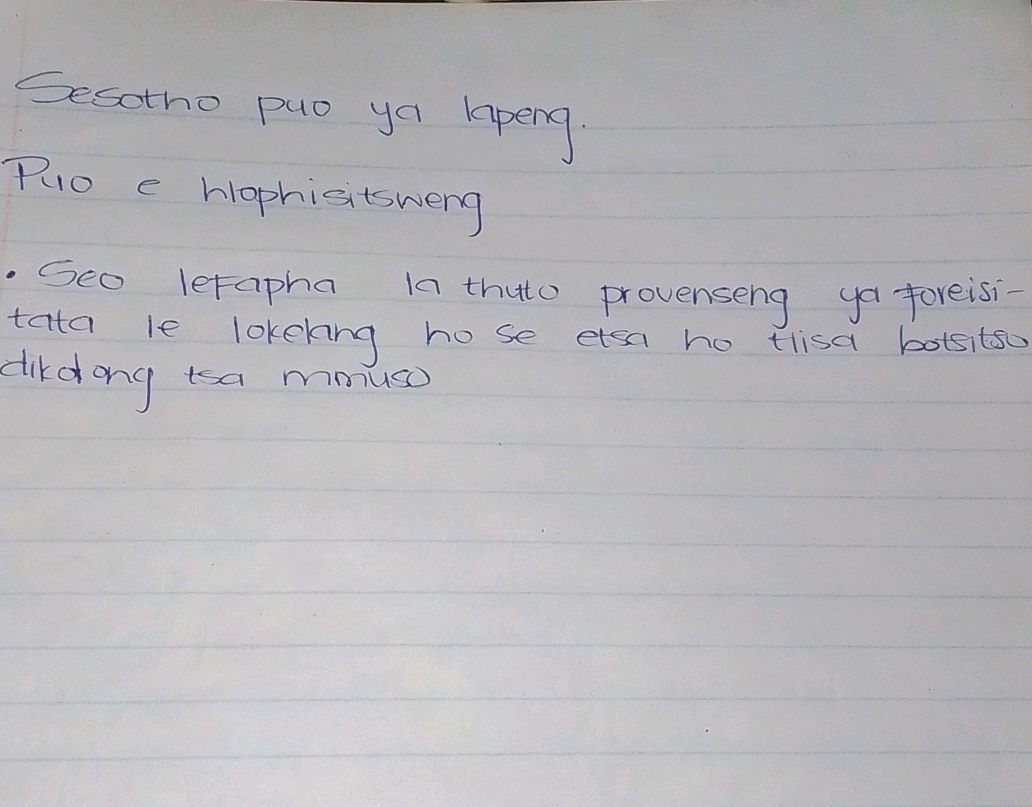 Sesotho puo ya lapeng.
Puo e hlophisitsweng
• Seo lefapha la thuto provenseng ya foreisi-
tata le lokelang ho se etsa ho tlisa botsitso
dikolong tsa mmuso